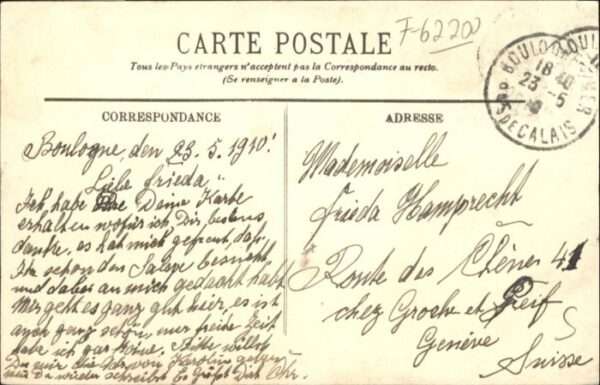 F-62200
CARTE POSTALE
Tous les Pays étrangers n'acceptent pas la Correspondance au recto.
(Se renseigner à la Poste).
BOULOGNE
18 40
23 - 5
PAS DE CALAIS
CORRESPONDANCE
Boulogne, den 23. 5. 1910.
Liebe Frieda
Ich habe Deine Karte
erhalten wofür ich Dir bestens
danke. es hat mich gefreut, daß
Ihr schon den Salève besucht
und dabei an mich gedacht habt
Mir geht es ganz gut hier, es ist
auch ganz schön, nur freie Zeit
habe ich gar keine. Bitte willst
Du mir die Adr. von Karolin
wenn Du wieder schreibst Es grüßt Dich
ADRESSE
Mademoiselle
Frieda Hamprecht
Route des Chênes 41
chez Grosche et Greif
Genève
Suisse